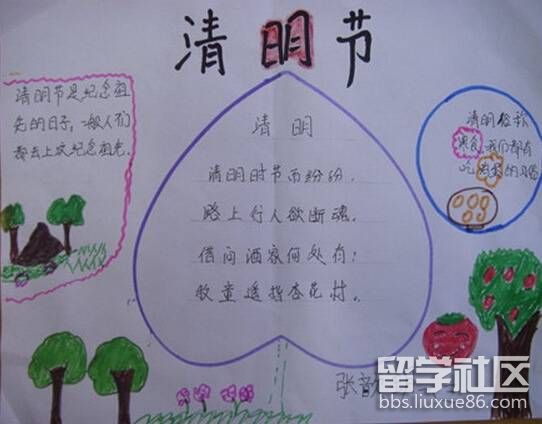 清明节
清明节是纪念祖
先的日子,一般人们
都去上坟纪念祖先.
清明
清明时节雨纷纷,
路上行人欲断魂,
借问酒家何处有;
牧童遥指杏花村。
清明俗称
寒食,我们都有
吃 的习俗
张
留学社区
bbs.liuxue86.com